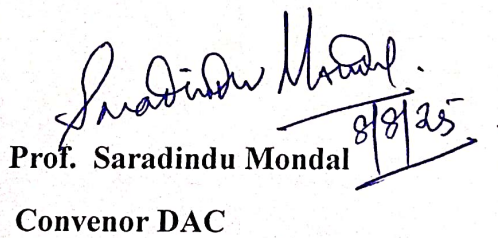 Saradindu Mondal.
8/8/25
Prof. Saradindu Mondal
Convenor DAC